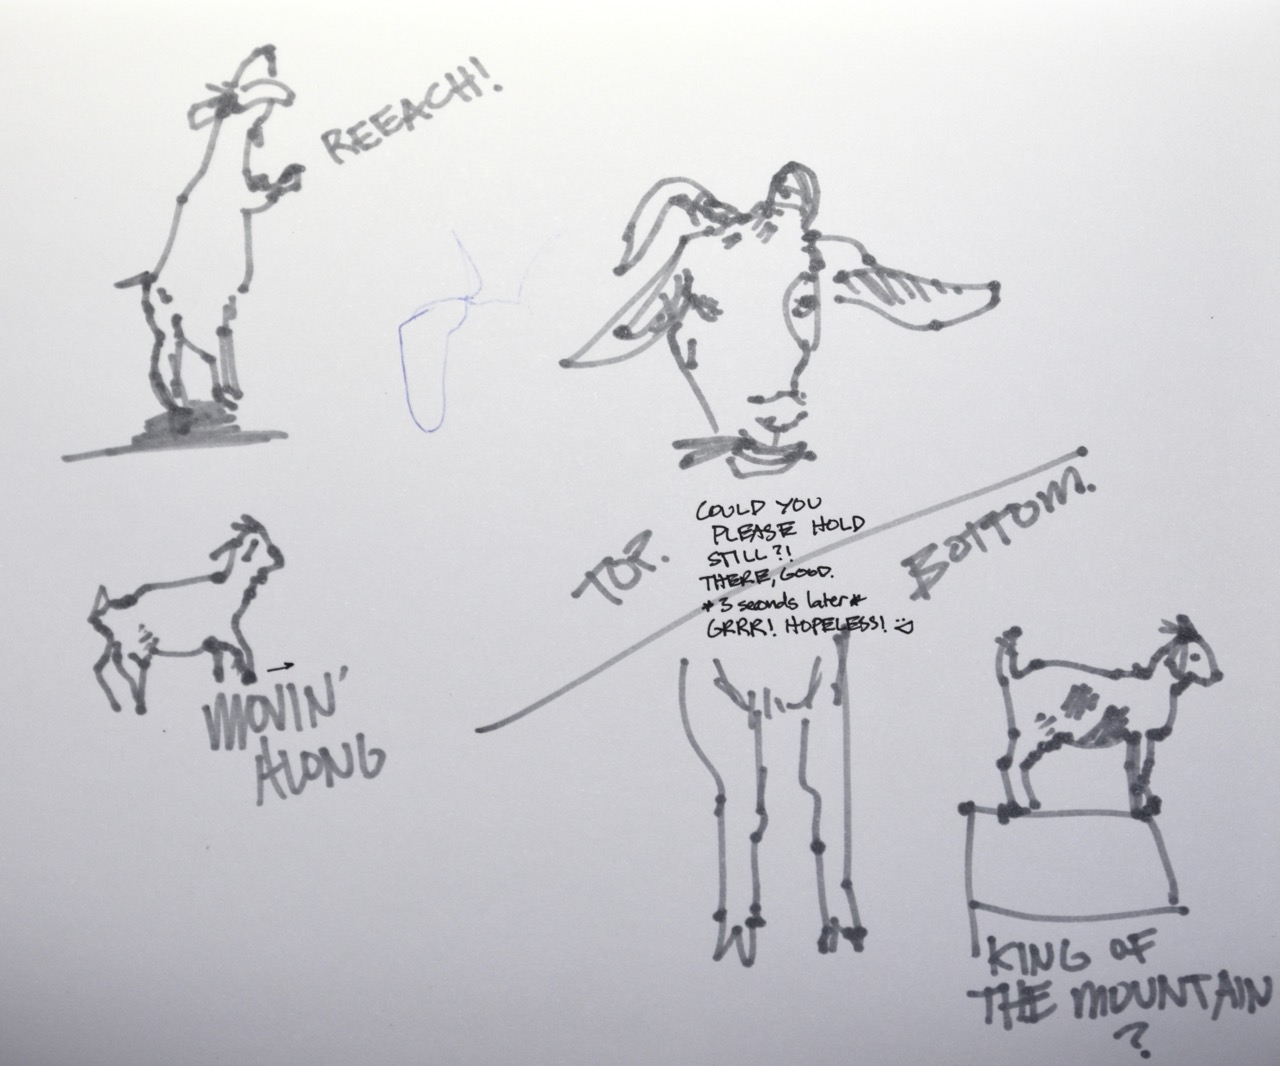 REEACH!
TOP.
BOTTOM.
COULD YOU
PLEASE HOLD
STILL?!
THERE, GOOD.
*3 seconds later*
GRRR! HOPELESS!
MOVIN'
ALONG
KING OF
THE MOUNTAIN
?